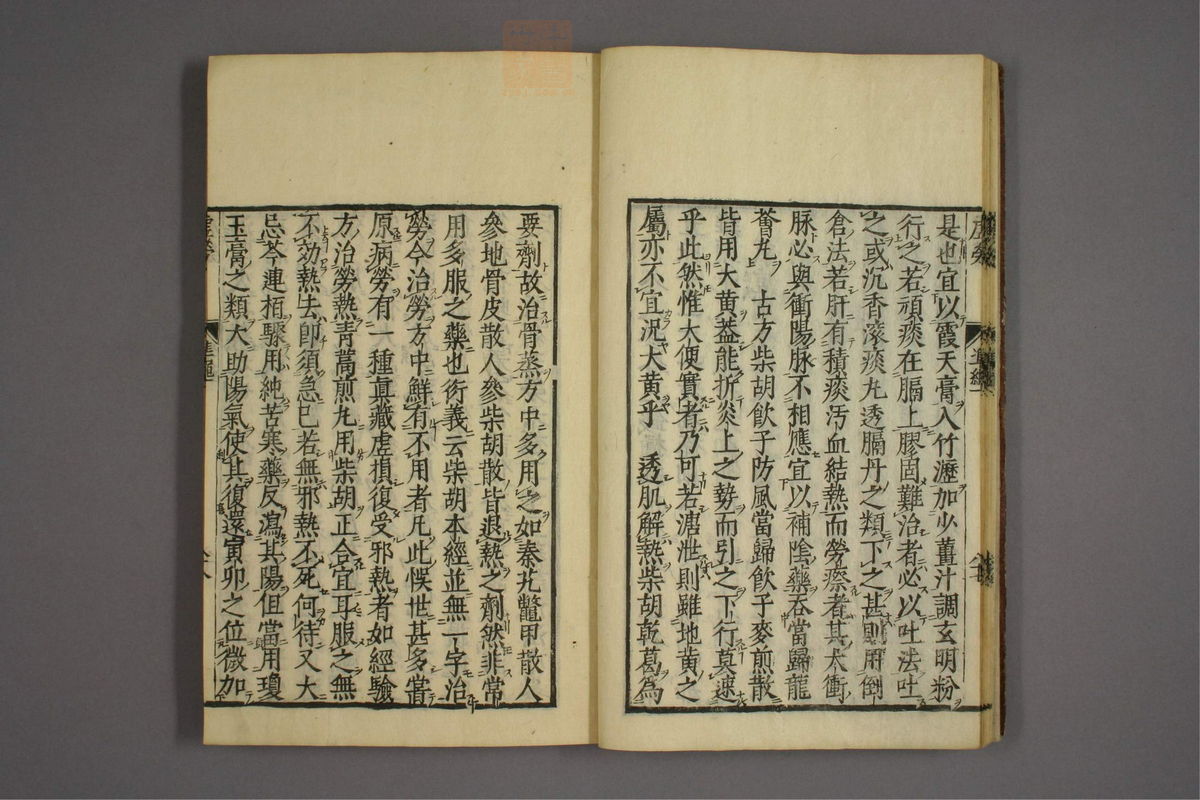 是也宜以霞天膏入竹瀝加少薑汁調玄明粉
行之若頑痰在膈上膠固難治者必以吐法吐
之或沉香滚痰丸透膈丹之類下之甚則用倒
倉法若肝有積痰汚血結熱而勞瘵者其太衝
脉必與衝陽脉不相應宜以補陰藥吞當歸龍
薈丸 古方柴胡飲子防風當歸飲子麥煎散
皆用大黄葢能折炎上之勢而引之下行莫速
乎此然惟大便實者乃可若溏泄則雖地黄之
屬亦不宜況大黄乎 透肌解熱柴胡乾葛為
要劑故治骨蒸方中多用之如秦艽鼈甲散人
參地骨皮散人參柴胡散皆退熱之劑然非常
用多服之藥也衍義云柴胡本經並無一字治
勞今治勞方中鮮有不用者凡此悞世甚多嘗
原病勞有一種眞藏虚損復受邪熱者如經驗
方治勞熱靑蒿煎丸用柴胡正合宜耳服之無
不効熱去卽須急已若無邪熱不死何待又大
忌芩連栢驟用純苦寒藥反瀉其陽但當用瓊
玉膏之類大助陽氣使其復還寅卯之位微加